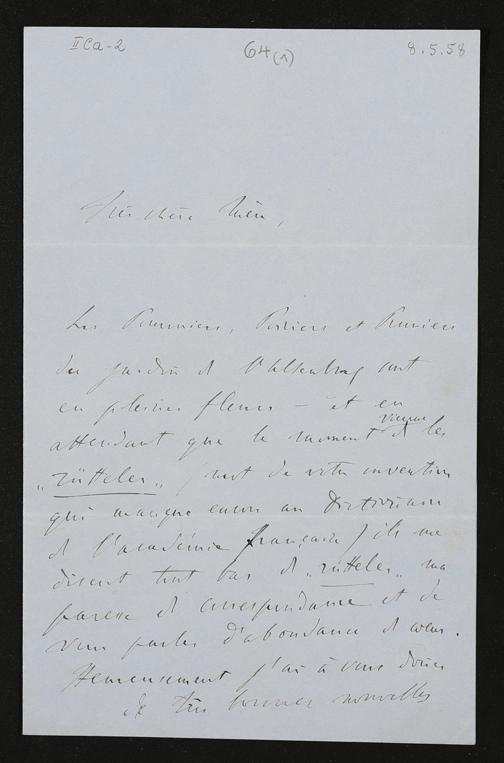 II Ca-2
64(1)
8.5.58
Très chère Mère,
Les Pommiers, Poiriers et Pruniers
du jardin de l'Altenburg sont
en pleines fleurs – et en
attendant que le moment vienne de les
„rütteler„ (mot de votre invention
qui manque encore au Dictionnaire
de l'académie française) ils me
disent tout bas de „rütteler„ ma
paresse de correspondance et de
vous parler d'abondance de cœur.
Heureusement j'ai à vous donner
de très bonnes nouvelles